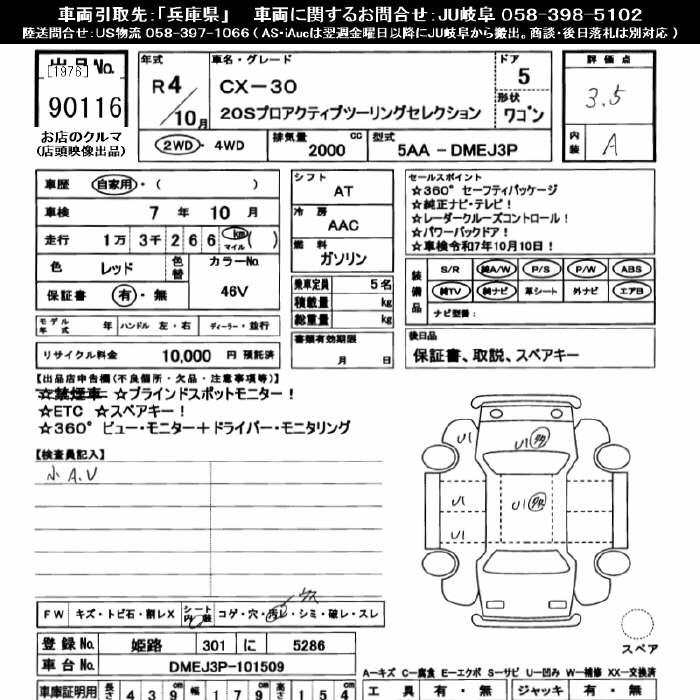 車両引取先:「兵庫県」 車両に関するお問合せ:JU岐阜 058-398-5102
陸送問合せ:US物流 058-397-1066 ( AS・iAucは翌週金曜日以降にJU岐阜から搬出。商談・後日落札は別対応 )
出品No.
[1976]
90116
お店のクルマ
(店頭映像出品)
年式 車名・グレード ドア 評価点
R4/10月 CX-30 5 3.5
20Sプロアクティブツーリングセレクション 形状 ワゴン
2WD・4WD 排気量 2000 cc 型式 5AA - DMEJ3P 内装 A
車歴 自家用・( )
車検 7 年 10 月
走行 1万 3千 2 6 6 km マイル ( )
色 レッド 色替 カラーNo.
保証書 有・無 46V
モデル年式 年 ハンドル 左・右 ディーラー・並行
リサイクル料金 10,000 円 預託済
シフト AT
冷房 AAC
燃料 ガソリン
乗車定員 5 名
積載量 kg
総重量 kg
書類有効期限
月 日
セールスポイント
☆360°セーフティパッケージ
☆純正ナビ・テレビ!
☆レーダークルーズコントロール!
☆パワーバックドア!
☆車検令和7年10月10日!
装備品 S/R 純A/W P/S P/W ABS
純TV 純ナビ 革シート 外ナビ エアB
ナビ型番:
後日品
保証書、取説、スペアキー
【出品店申告欄(不良個所・欠品・注意事項等)】
☆禁煙車 ☆ブラインドスポットモニター!
☆ETC ☆スペアキー!
☆360°ビュー・モニター+ドライバー・モニタリング
【検査員記入】
小A.U
U1 U1
U1 U1
U1
スペア
FW キズ・トビ石・割レX シート内装 コゲ・穴・汚レ・シミ・破レ・スレ
登録No. 姫路 301 に 5286
車台No. DMEJ3P-101509
車庫証明用 長 4 3 9 cm 幅 1 7 9 cm 高さ 1 5 4 cm
A-キズ C-腐食 E-エクボ S-サビ U-凹み W-補修 XX-交換済
工具 有・無 ジャッキ 有・無